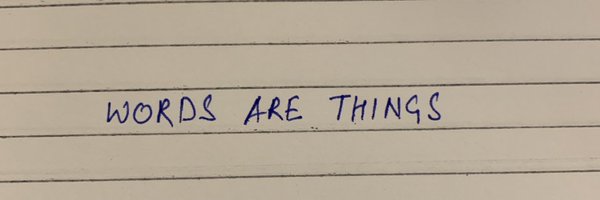 WORDS ARE THINGS